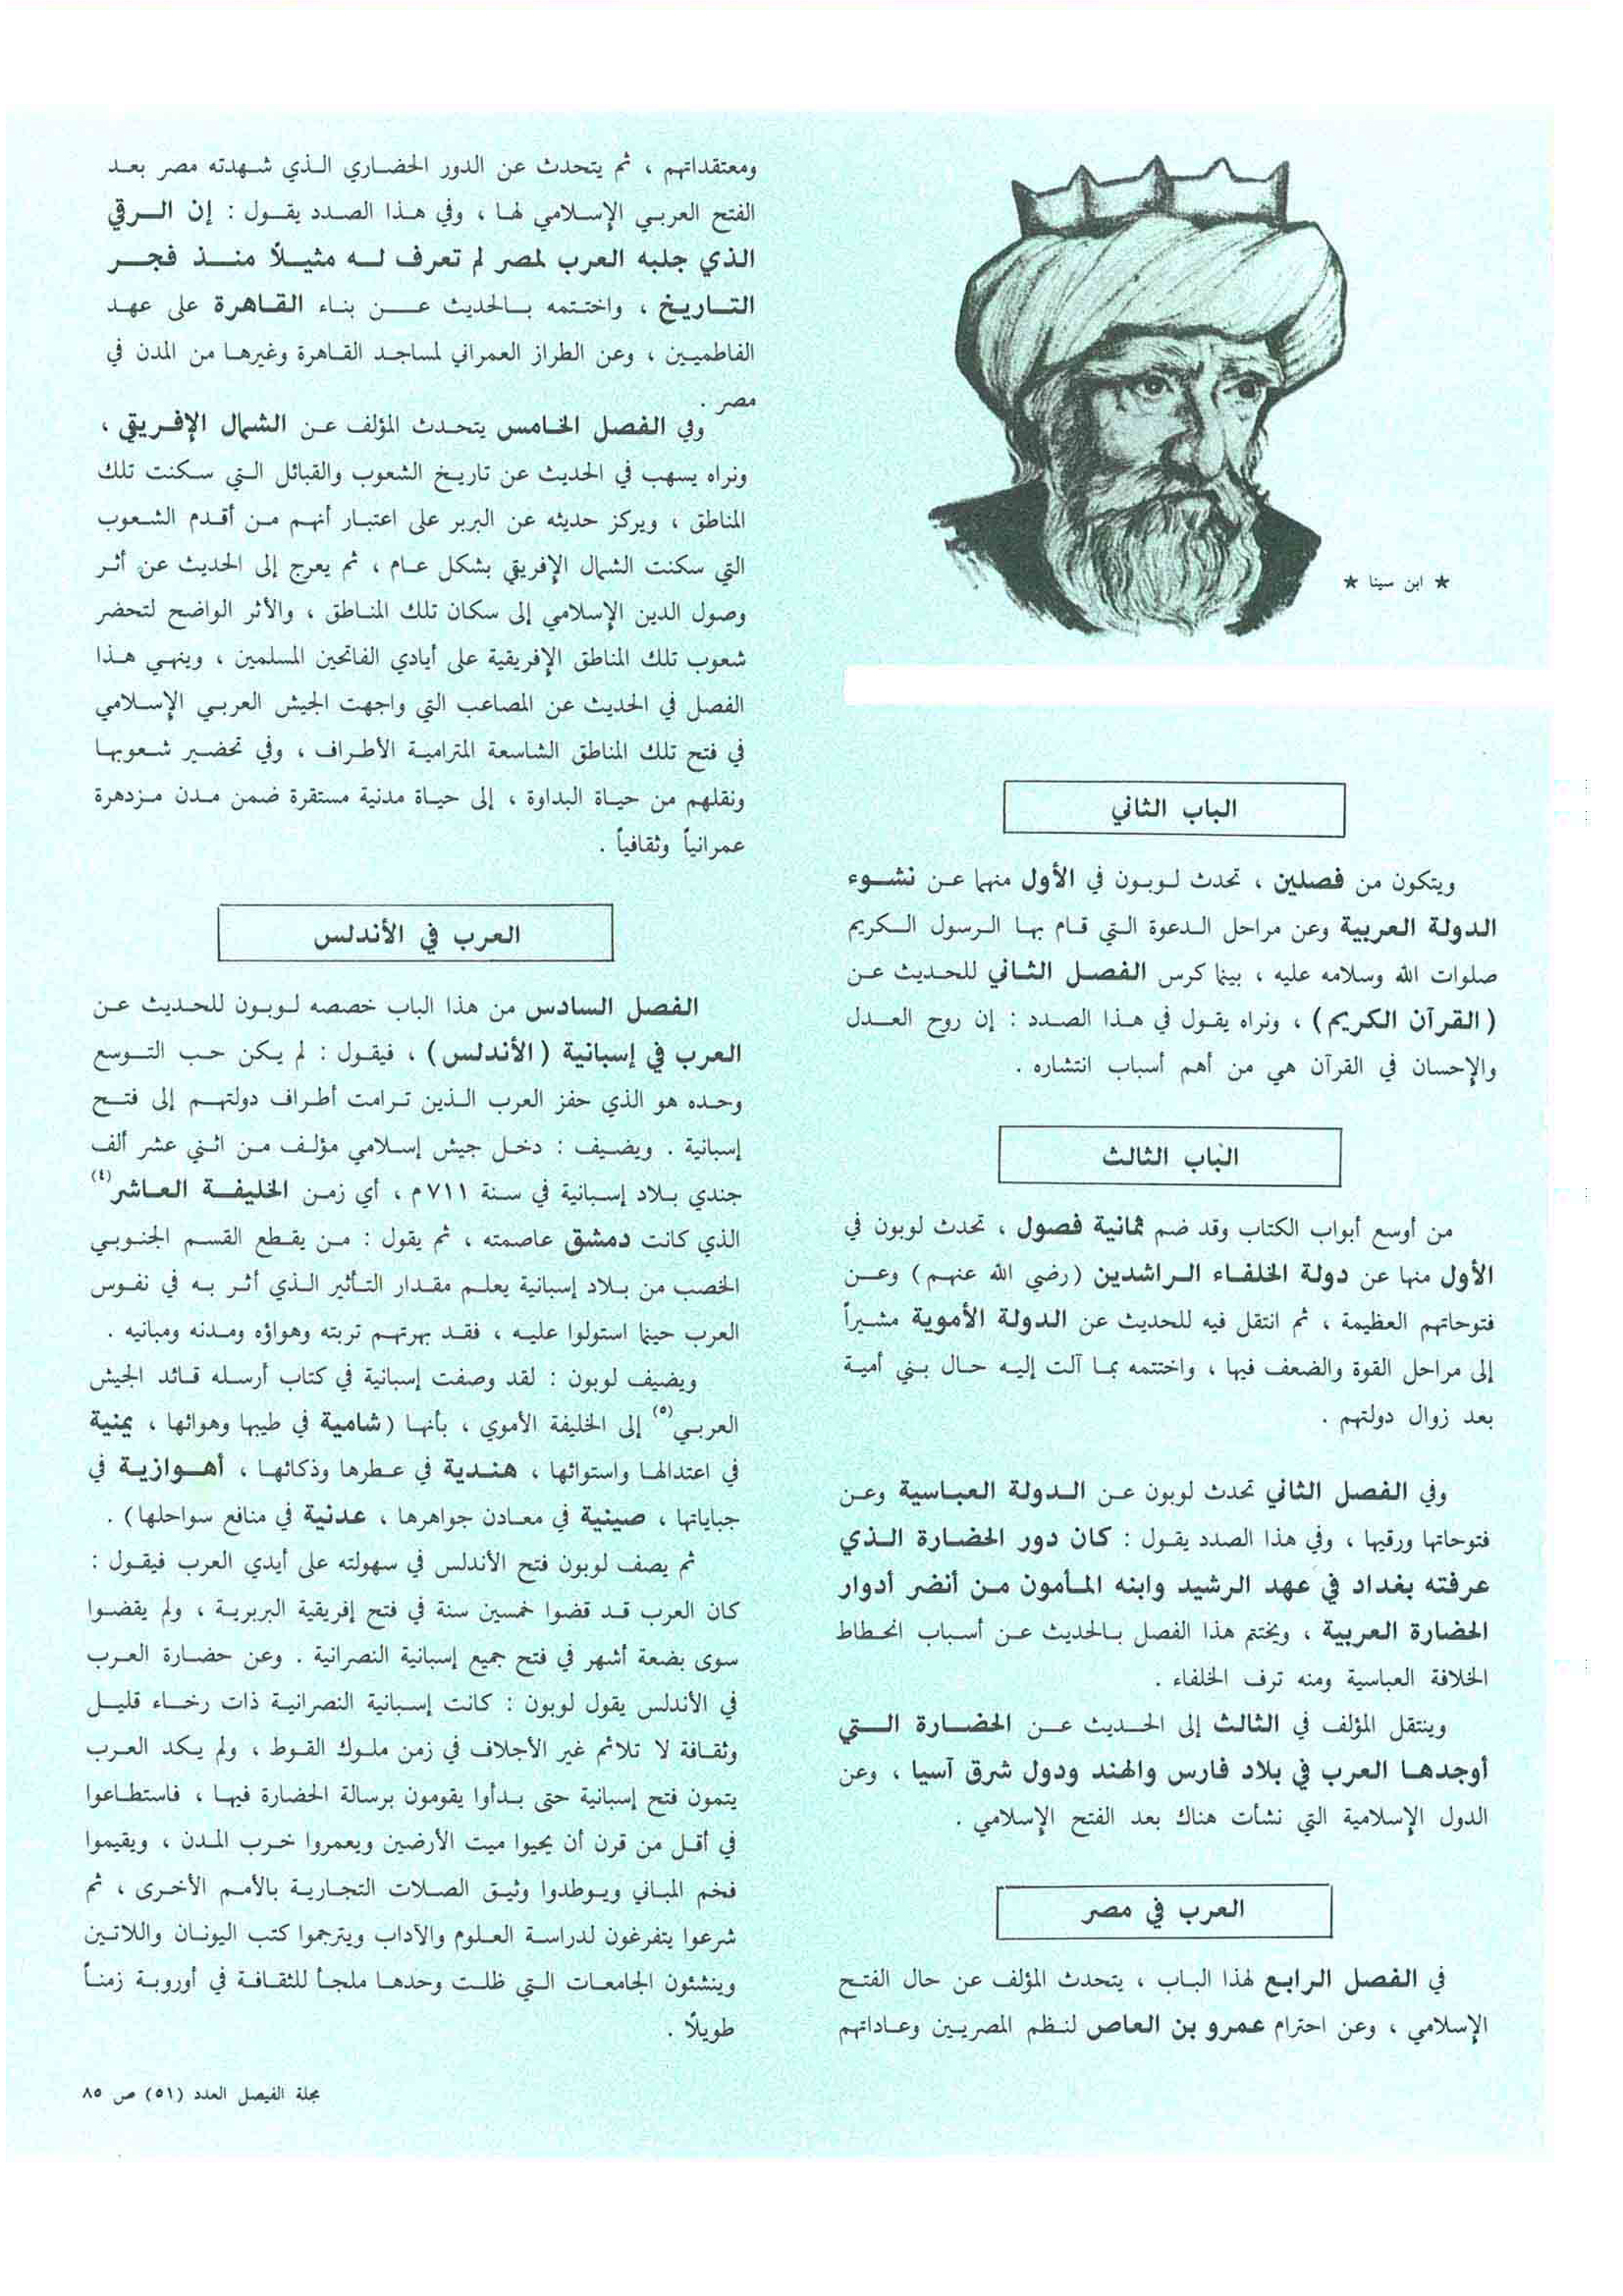 ★ ابن سينا ★
الباب الثاني
ويتكون من فصلين ، تحدث لوبون في الأول منهما عن نشوء
الدولة العربية وعن مراحل الدعوة التي قام بها الرسول الكريم
صلوات الله وسلامه عليه ، بينما كرس الفصل الثاني للحديث عن
(القرآن الكريم) ، ونراه يقول في هذا الصدد : إن روح العدل
والإحسان في القرآن هي من أهم أسباب انتشاره .
الباب الثالث
من أوسع أبواب الكتاب وقد ضم ثمانية فصول ، تحدث لوبون في
الأول منها عن دولة الخلفاء الراشدين (رضي الله عنهم) وعن
فتوحاتهم العظيمة ، ثم انتقل فيه للحديث عن الدولة الأموية مشيراً
إلى مراحل القوة والضعف فيها ، واختتمه بما آلت إليه حال بني أمية
بعد زوال دولتهم .
وفي الفصل الثاني تحدث لوبون عن الدولة العباسية وعن
فتوحاتها ورقيها ، وفي هذا الصدد يقول : كان دور الحضارة الذي
عرفته بغداد في عهد الرشيد وابنه المأمون من أنضر أدوار
الحضارة العربية ، ويختتم هذا الفصل بالحديث عن أسباب انحطاط
الخلافة العباسية ومنه ترف الخلفاء .
وينتقل المؤلف في الثالث إلى الحديث عن الحضارة التي
أوجدها العرب في بلاد فارس والهند ودول شرق آسيا ، وعن
الدول الإسلامية التي نشأت هناك بعد الفتح الإسلامي .
العرب في مصر
في الفصل الرابع لهذا الباب ، يتحدث المؤلف عن حال الفتح
الإسلامي ، وعن احترام عمرو بن العاص لنظم المصريين وعاداتهم
ومعتقداتهم ، ثم يتحدث عن الدور الحضاري الذي شهدته مصر بعد
الفتح العربي الإسلامي لها ، وفي هذا الصدد يقول : إن الرقي
الذي جلبه العرب لمصر لم تعرف له مثيلاً منذ فجر
التاريخ ، واختتمه بالحديث عن بناء القاهرة على عهد
الفاطميين ، وعن الطراز العمراني لمساجد القاهرة وغيرها من المدن في
مصر .
وفي الفصل الخامس يتحدث المؤلف عن الشمال الإفريقي ،
ونراه يسهب في الحديث عن تاريخ الشعوب والقبائل التي سكنت تلك
المناطق ، ويركز حديثه عن البربر على اعتبار أنهم من أقدم الشعوب
التي سكنت الشمال الإفريقي بشكل عام ، ثم يعرج إلى الحديث عن أثر
وصول الدين الإسلامي إلى سكان تلك المناطق ، والأثر الواضح لتحضر
شعوب تلك المناطق الإفريقية على أيادي الفاتحين المسلمين ، وينهي هذا
الفصل في الحديث عن المصاعب التي واجهت الجيش العربي الإسلامي
في فتح تلك المناطق الشاسعة المترامية الأطراف ، وفي تحضير شعوبها
ونقلهم من حياة البداوة ، إلى حياة مدنية مستقرة ضمن مدن مزدهرة
عمرانياً وثقافياً .
العرب في الأندلس
الفصل السادس من هذا الباب خصصه لوبون للحديث عن
العرب في إسبانية (الأندلس) ، فيقول : لم يكن حب التوسع
وحده هو الذي حفز العرب الذين ترامت أطراف دولتهم إلى فتح
إسبانية . ويضيف : دخل جيش إسلامي مؤلف من اثني عشر ألف
جندي بلاد إسبانية في سنة ٧١١ م ، أي زمن الخليفة العاشر(٤)
الذي كانت دمشق عاصمته ، ثم يقول : من يقطع القسم الجنوبي
الخصب من بلاد إسبانية يعلم مقدار التأثير الذي أثر به في نفوس
العرب حينما استولوا عليه ، فقد بهرتهم تربته وهواؤه ومدنه ومبانيه .
ويضيف لوبون : لقد وصفت إسبانية في كتاب أرسله قائد الجيش
العربي(٥) إلى الخليفة الأموي ، بأنها (شامية في طيبها وهوائها ، يمنية
في اعتدالها واستوائها ، هندية في عطرها وذكائها ، أهوازية في
جباياتها ، صينية في معادن جواهرها ، عدنية في منافع سواحلها) .
ثم يصف لوبون فتح الأندلس في سهولته على أيدي العرب فيقول :
كان العرب قد قضوا خمسين سنة في فتح إفريقية البربرية ، ولم يقضوا
سوى بضعة أشهر في فتح جميع إسبانية النصرانية . وعن حضارة العرب
في الأندلس يقول لوبون : كانت إسبانية النصرانية ذات رخاء قليل
وثقافة لا تلائم غير الأجلاف في زمن ملوك القوط ، ولم يكد العرب
يتمون فتح إسبانية حتى بدأوا يقومون برسالة الحضارة فيها ، فاستطاعوا
في أقل من قرن أن يحيوا ميت الأرضين ويعمروا خرب المدن ، ويقيموا
فخم المباني ويوطدوا وثيق الصلات التجارية بالأمم الأخرى ، ثم
شرعوا يتفرغون لدراسة العلوم والآداب ويترجموا كتب اليونان واللاتين
وينشئون الجامعات التي ظلت وحدها ملجأ للثقافة في أوروبة زمناً
طويلًا .
مجلة الفيصل العدد (٥١) ص ٨٥